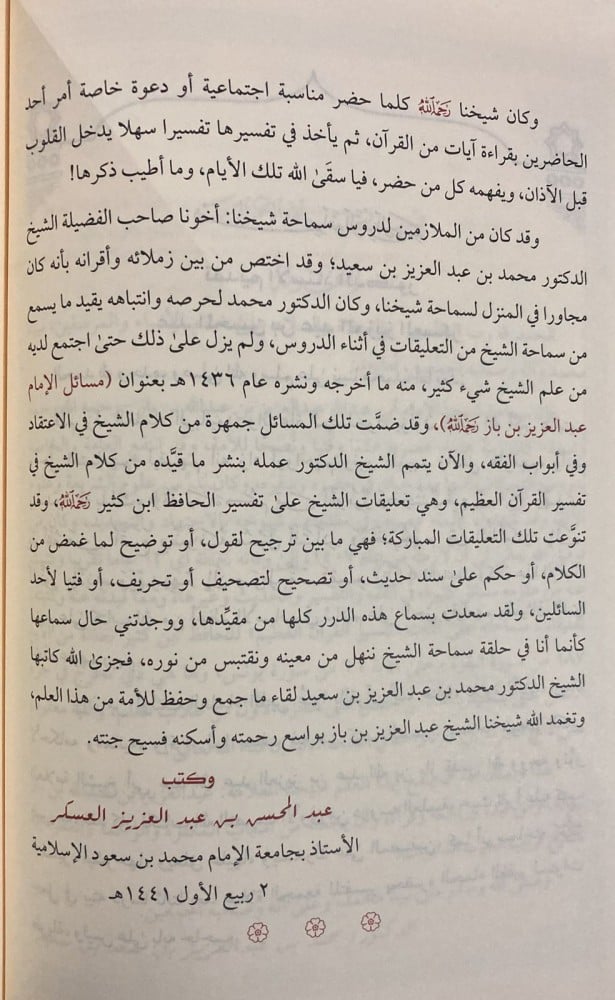 وكان شيخنا رَحِمَهُ ٱللَّهُ كلما حضر مناسبة اجتماعية أو دعوة خاصة أمر أحد
الحاضرين بقراءة آيات من القرآن، ثم يأخذ في تفسيرها تفسيرا سهلا يدخل القلوب
قبل الآذان، ويفهمه كل من حضر، فيا سقَىٰ الله تلك الأيام، وما أطيب ذكرها!
وقد كان من الملازمين لدروس سماحة شيخنا: أخونا صاحب الفضيلة الشيخ
الدكتور محمد بن عبد العزيز بن سعيد؛ وقد اختص من بين زملائه وأقرانه بأنه كان
مجاورا في المنزل لسماحة شيخنا، وكان الدكتور محمد لحرصه وانتباهه يقيد ما يسمع
من سماحة الشيخ من التعليقات في أثناء الدروس، ولم يزل علىٰ ذلك حتىٰ اجتمع لديه
من علم الشيخ شيء كثير، منه ما أخرجه ونشره عام ١٤٣٦هـ بعنوان (مسائل الإمام
عبد العزيز بن باز رَحِمَهُ ٱللَّهُ)، وقد ضمَّت تلك المسائل جمهرة من كلام الشيخ في الاعتقاد
وفي أبواب الفقه، والآن يتمم الشيخ الدكتور عمله بنشر ما قيَّده من كلام الشيخ في
تفسير القرآن العظيم، وهي تعليقات الشيخ علىٰ تفسير الحافظ ابن كثير رَحِمَهُ ٱللَّهُ، وقد
تنوَّعت تلك التعليقات المباركة؛ فهي ما بين ترجيح لقول، أو توضيح لما غمض من
الكلام، أو حكم علىٰ سند حديث، أو تصحيح لتصحيف أو تحريف، أو فتيا لأحد
السائلين، ولقد سعدت بسماع هذه الدرر كلها من مقيِّدها، ووجدتني حال سماعها
كأنما أنا في حلقة سماحة الشيخ ننهل من معينه ونقتبس من نوره، فجزىٰ الله كاتبها
الشيخ الدكتور محمد بن عبد العزيز بن سعيد لقاء ما جمع وحفظ للأمة من هذا العلم،
وتغمد الله شيخنا الشيخ عبد العزيز بن باز بواسع رحمته وأسكنه فسيح جنته.
وكتب
عبد المحسن بن عبد العزيز العسكر
الأستاذ بجامعة الإمام محمد بن سعود الإسلامية
٢ ربيع الأول ١٤٤١هـ